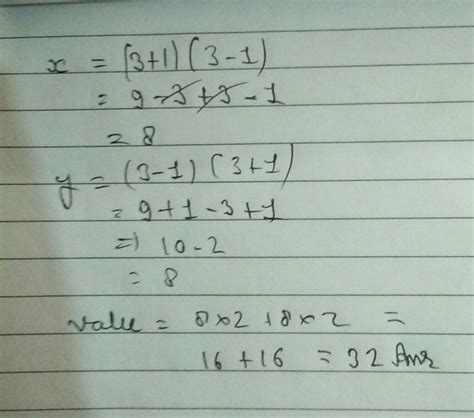 x = (3+1) (3-1)
= 9-3+3-1
= 8
y = (3-1) (3+1)
= 9+1-3+1
=) 10-2
= 8
value = 8×2 +8×2 =
16+16 = 32 Ans